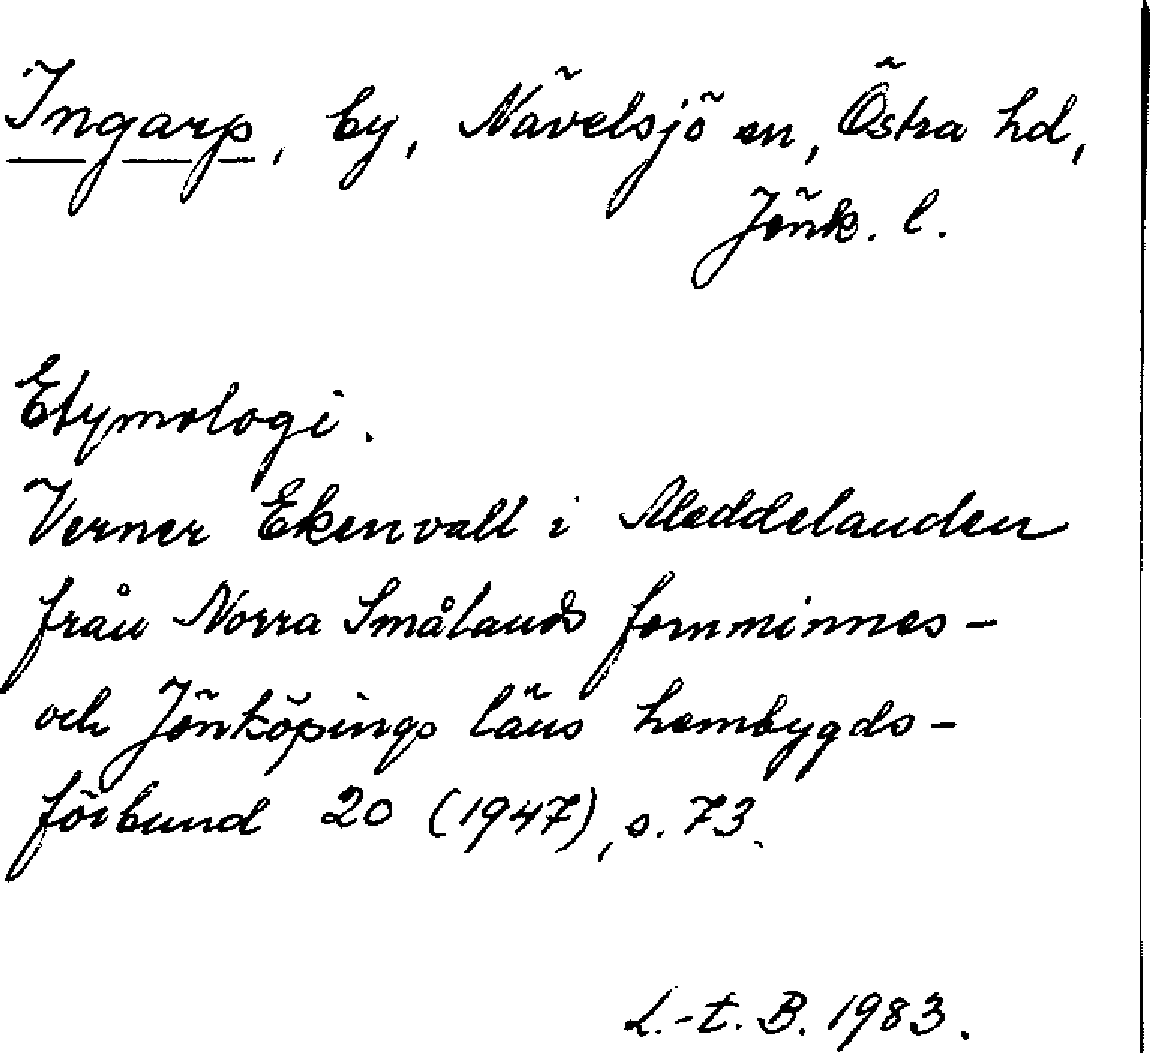 Ingarp, by, Nävelsjö sn, Östra hd,
Jönk. l.
Etymologi.
Verner Ekenvall i Meddelanden
från Norra Smålands fornminnes-
och Jönköpings läns hembygds-
förbund 20 (1947), s. 73.
L.-t. B. 1983.